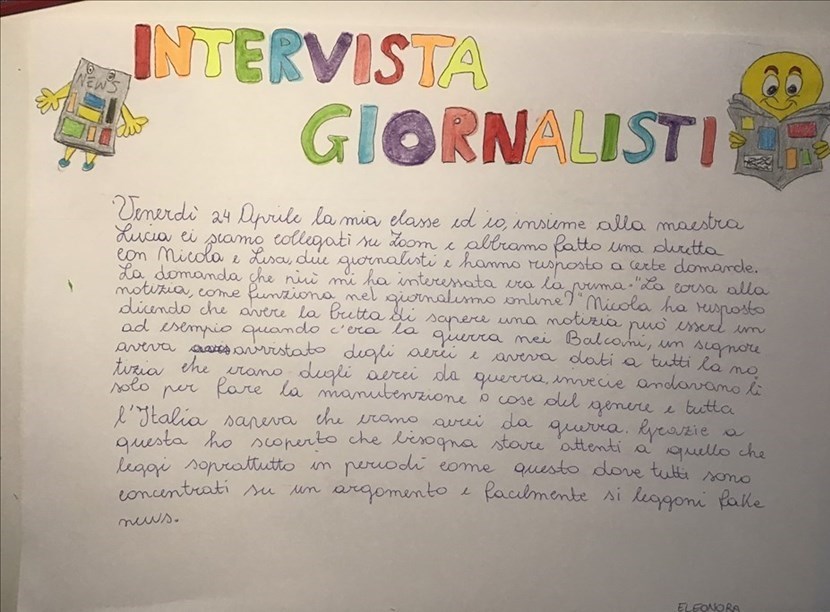 INTERVISTA
GIORNALISTI
NEWS
Venerdì 24 Aprile la mia classe ed io, insieme alla maestra
Lucia ci siamo collegati su Zoom e abbiamo fatto una diretta
con Nicola e Lisa, due giornalisti e hanno risposto a certe domande.
La domanda che più mi ha interessata era la prima: "La corsa alla
notizia, come funziona nel giornalismo online?" Nicola ha risposto
dicendo che avere la fretta di sapere una notizia può essere un
ad esempio quando c'era la guerra nei Balcani, un signore
aveva avvistato degli aerei e aveva dati a tutti la no
tizia che erano degli aerei da guerra, invecie andavano lì
solo per fare la manutenzione o cose del genere e tutta
l'Italia sapeva che erano aerei da guerra. Grazie a
questa ho scoperto che bisogna stare attenti a quello che
leggi soprattutto in periodi come questo dove tutti sono
concentrati su un argomento e facilmente si leggoni fake
news.
ELEONORA